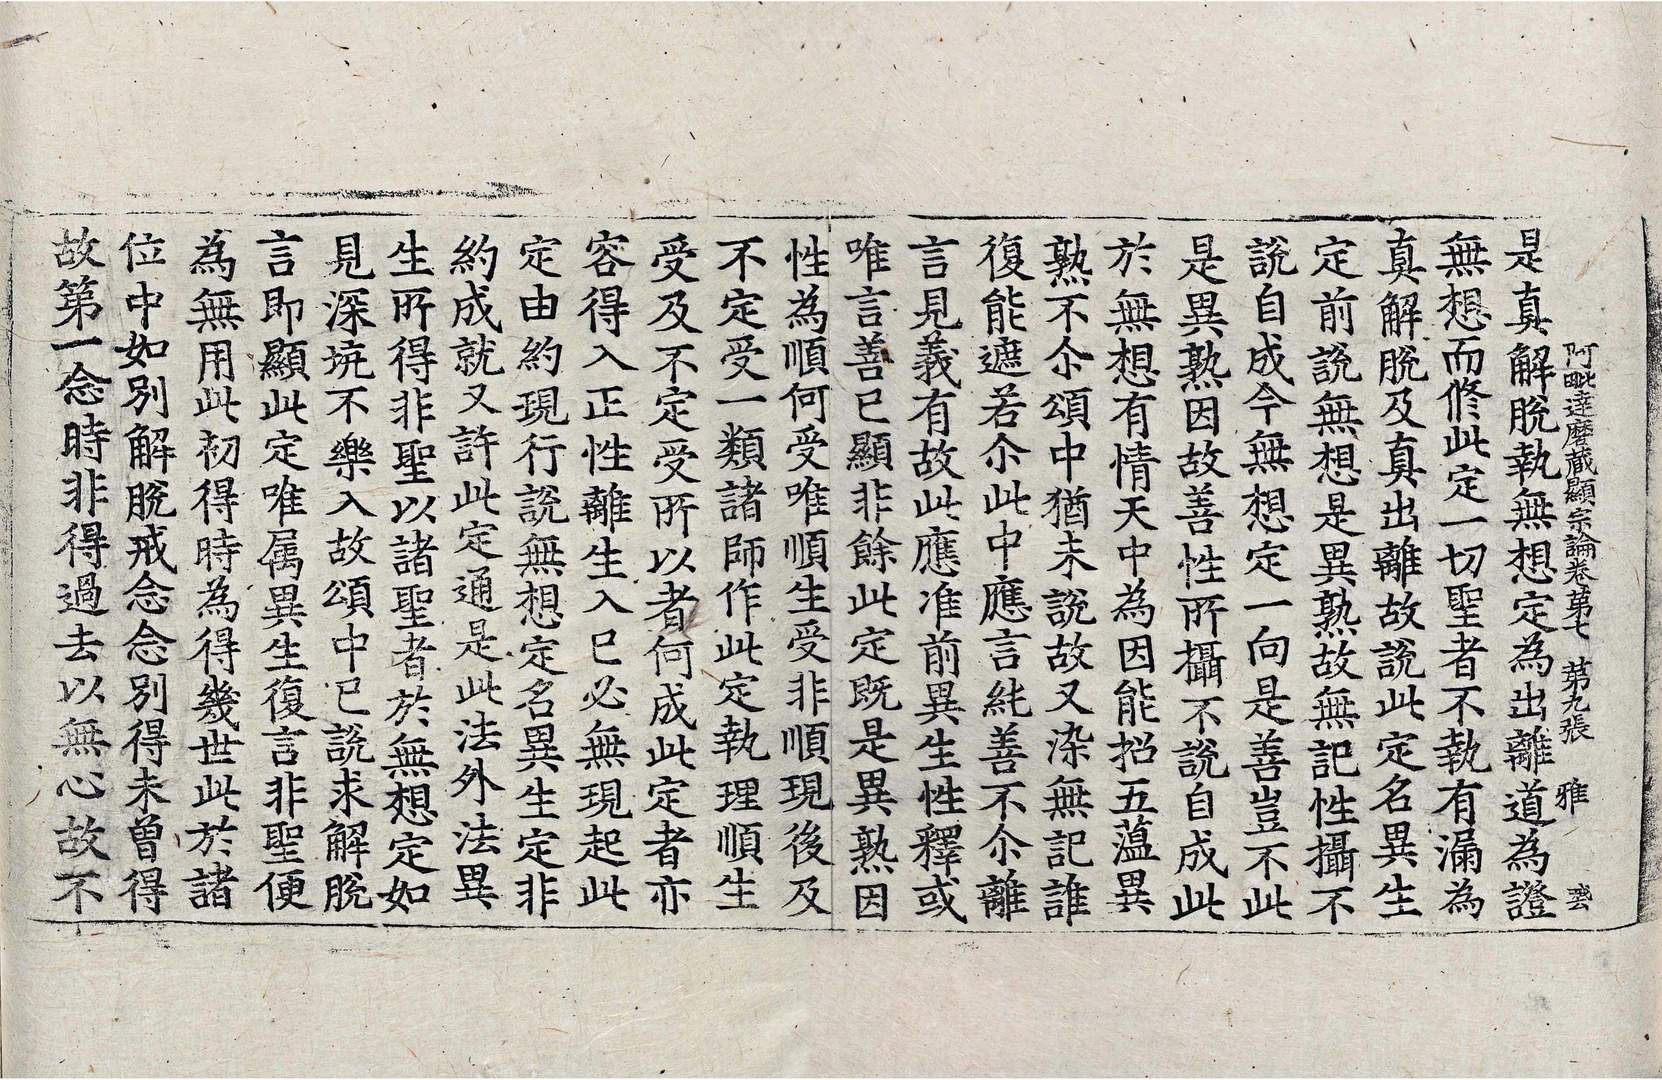 阿毗達磨藏顯宗論卷苐七　苐九張　雅
是真解脫執無想定為出離道為證
無想而修此定一切聖者不執有漏為
真解脫及真出離故說此定名異生
定前說無想是異熟故無記性攝不
說自成今無想定一向是善豈不此
是異熟因故善性所攝不說自成此
於無想有情天中為因能招五薀異
熟不尒頌中猶未說故又染無記誰
復能遮若尒此中應言純善不尒離
言見義有故此應准前異生性釋或
唯言善已顯非餘此定既是異熟因
性為順何受唯順生受非順現後及
不定受一類諸師作此定執理順生
受及不定受所以者何成此定者亦
容得入正性離生入已必無現起此
定由約現行說無想定名異生定非
約成就又許此定通是此法外法異
生所得非聖以諸聖者於無想定如
見深坑不樂入故頌中已說求解脫
言即顯此定唯属異生復言非聖便
為無用此初得時為得幾世此於諸
位中如別解脫戒念念別得未曾得
故第一念時非得過去以無心故不